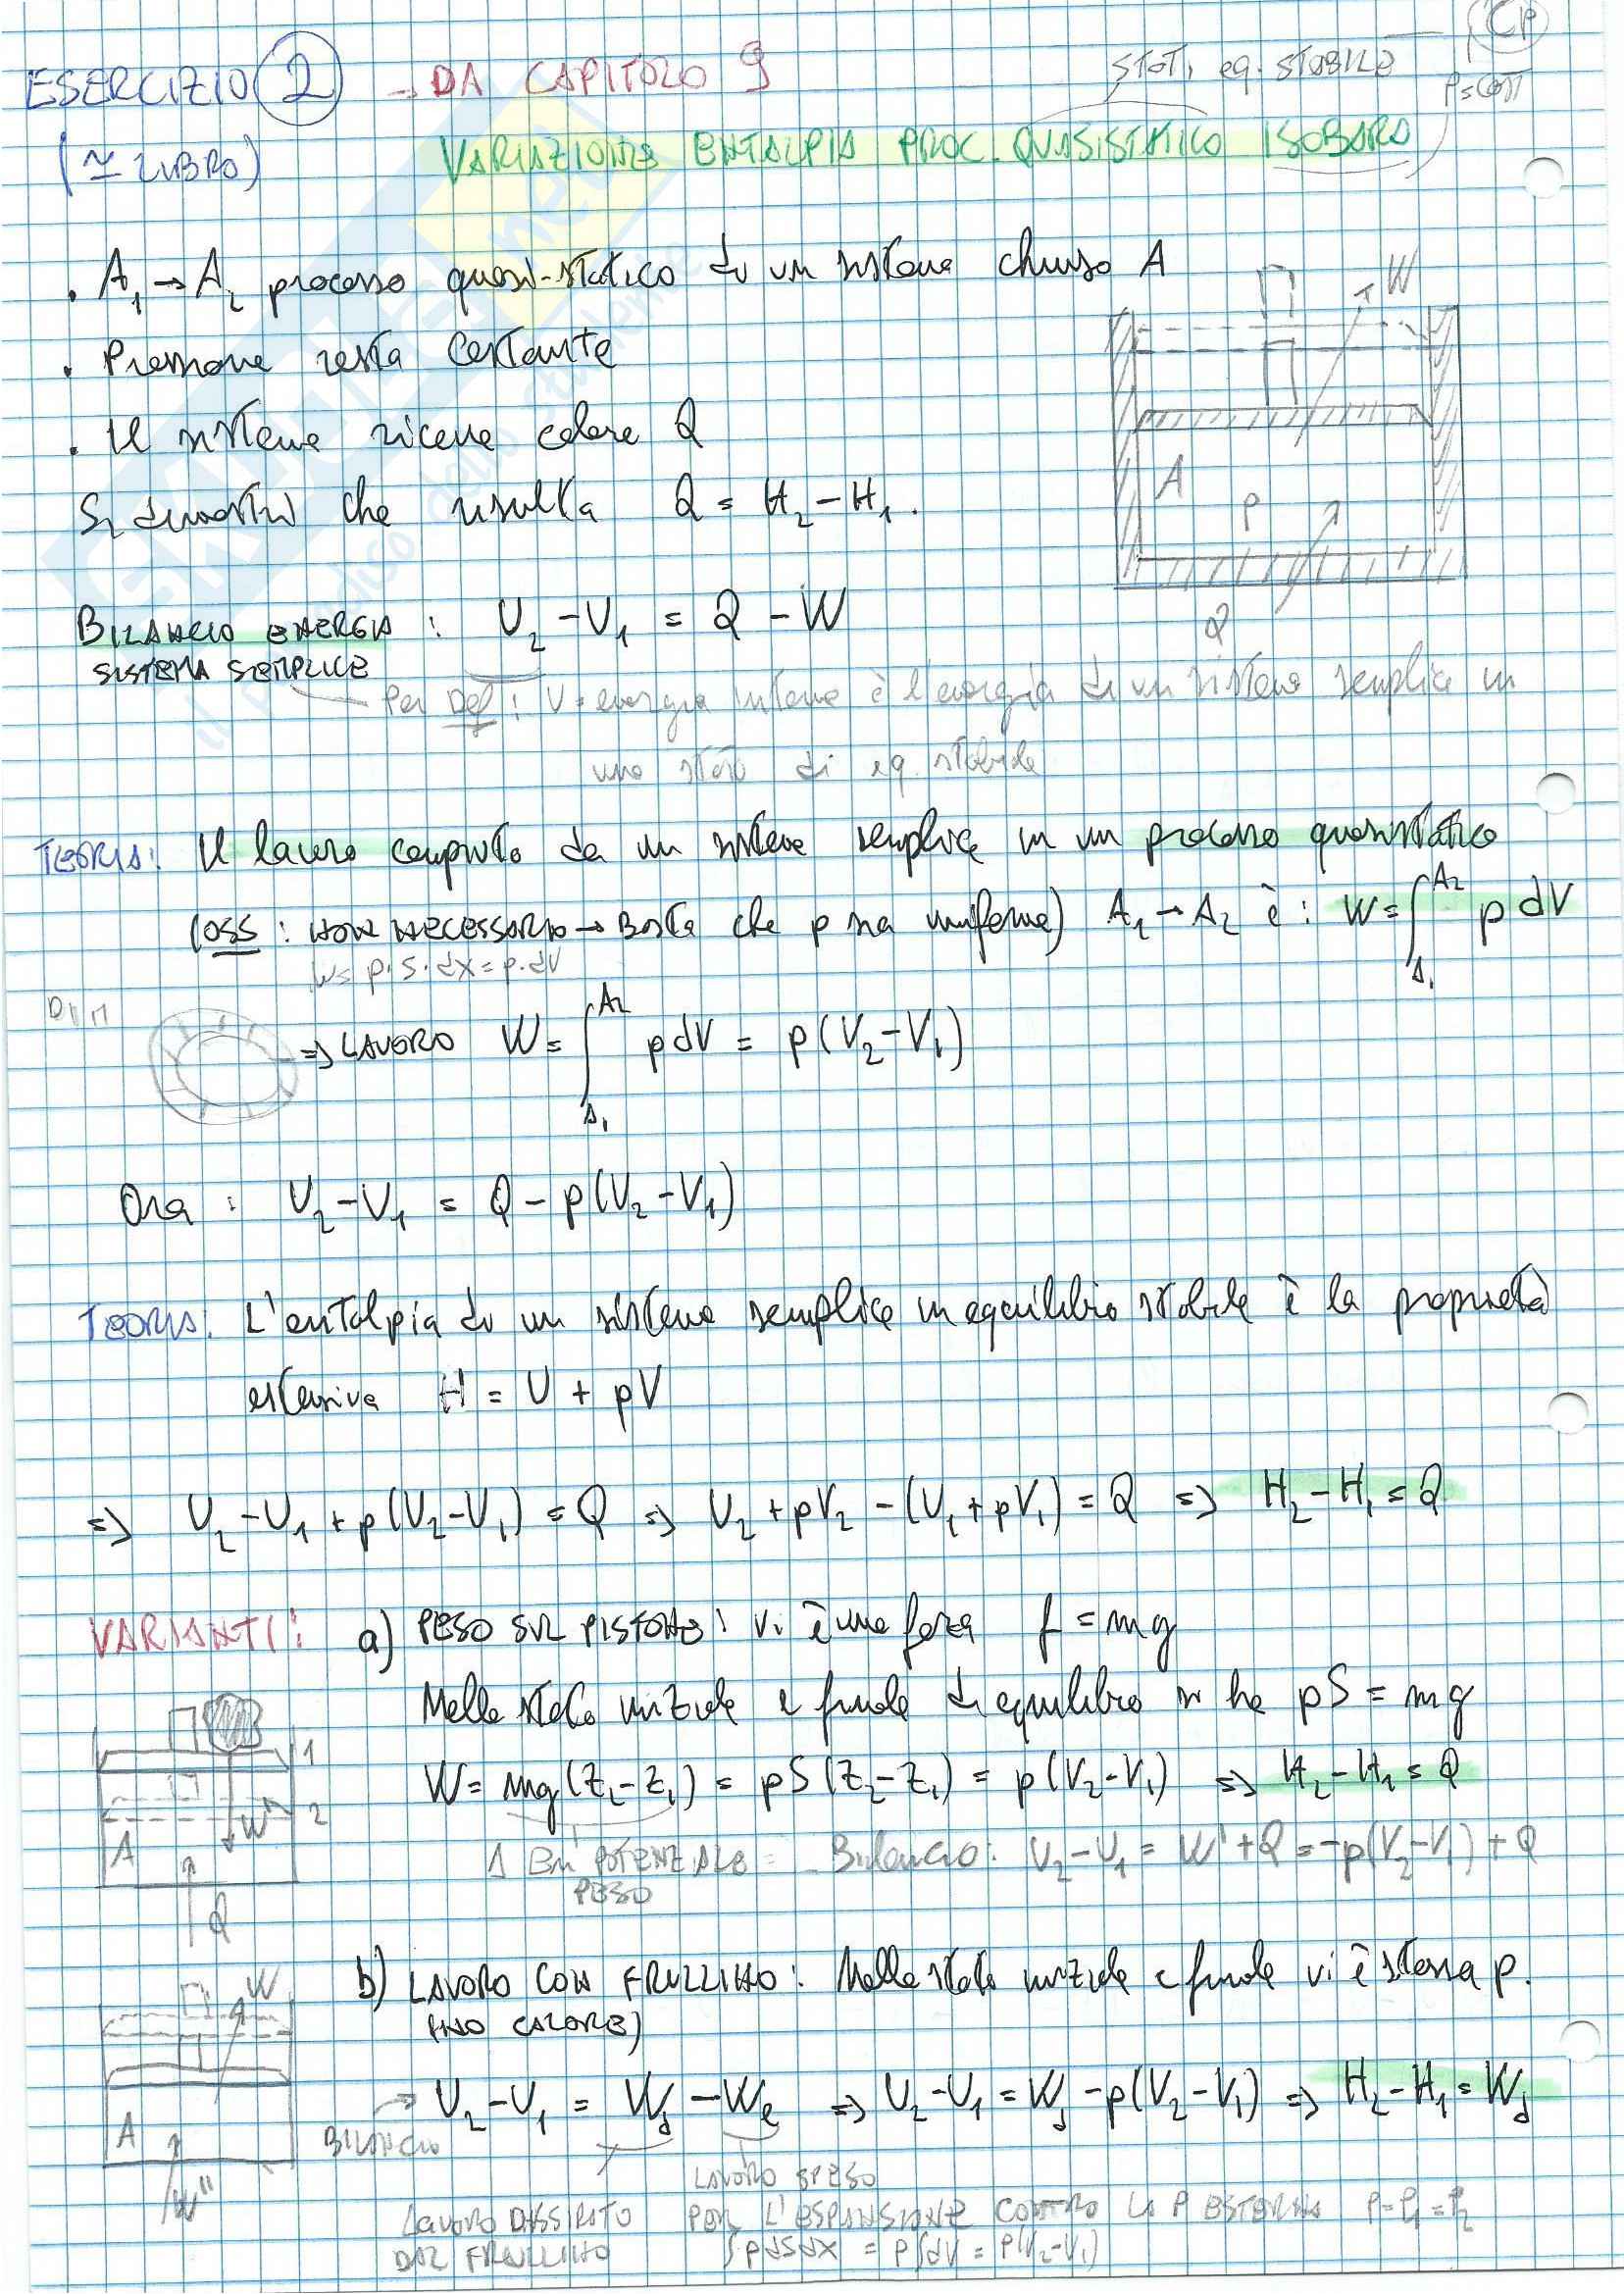 CP
ESERCIZIO 2 → DA CAPITOLO 9
STATI eq. STABILE
P=COST
(≃ LIBRO)
VARIAZIONE ENTALPIA PROC. QUASISTATICO ISOBARO
. A1 → A2 processo quasi-statico di un sistema chiuso A
W
. Pressione resta costante
. Il sistema riceve calore Q
A P
Si dimostri che risulta Q = H2 - H1.
Q
BILANCIO ENERGIA : U2 - U1 = Q - W
SISTEMA SEMPLICE
Per Def : U = energia interna è l'energia di un sistema semplice in
uno stato di eq. stabile
TEORIA: Il lavoro compiuto da un sistema semplice in un processo quasistatico
(OSS : NON NECESSARIO → Basta che p sia uniforme) A1 → A2 è : W = ∫A1A2 p dV
W = p·S·dx = p·dV
DIM
⇒ LAVORO W = ∫A1A2 p dV = p(V2 - V1)
Ora : U2 - U1 = Q - p(V2 - V1)
TEORIA: L'entalpia di un sistema semplice in equilibrio stabile è la proprietà
estensiva H = U + pV
⇒ U2 - U1 + p(V2 - V1) = Q ⇒ U2 + pV2 - (U1 + pV1) = Q ⇒ H2 - H1 = Q
VARIANTI: a) PESO SUL PISTONE: Vi è una forza f = mg
Nello stato iniziale e finale di equilibrio si ha pS = mg
1
W = mg(Z2 - Z1) = pS(Z2 - Z1) = p(V2 - V1) ⇒ H2 - H1 = Q
2
A W'
Δ EN POTENZIALE PESO
Bilancio: U2 - U1 = W' + Q = -p(V2 - V1) + Q
Q
b) LAVORO CON FRULLINO: Nello stato iniziale e finale vi è stessa p.
W
(NO CALORE)
BILANCIO → U2 - U1 = Wd - We ⇒ U2 - U1 = Wd - p(V2 - V1) ⇒ H2 - H1 = Wd
A
W''
LAVORO DISSIPATO
DAL FRULLINO
LAVORO SPESO
PER L'ESPANSIONE CONTRO LA P ESTERNA P = P1 = P2
∫pdSdx = p∫dV = P(V2 - V1)